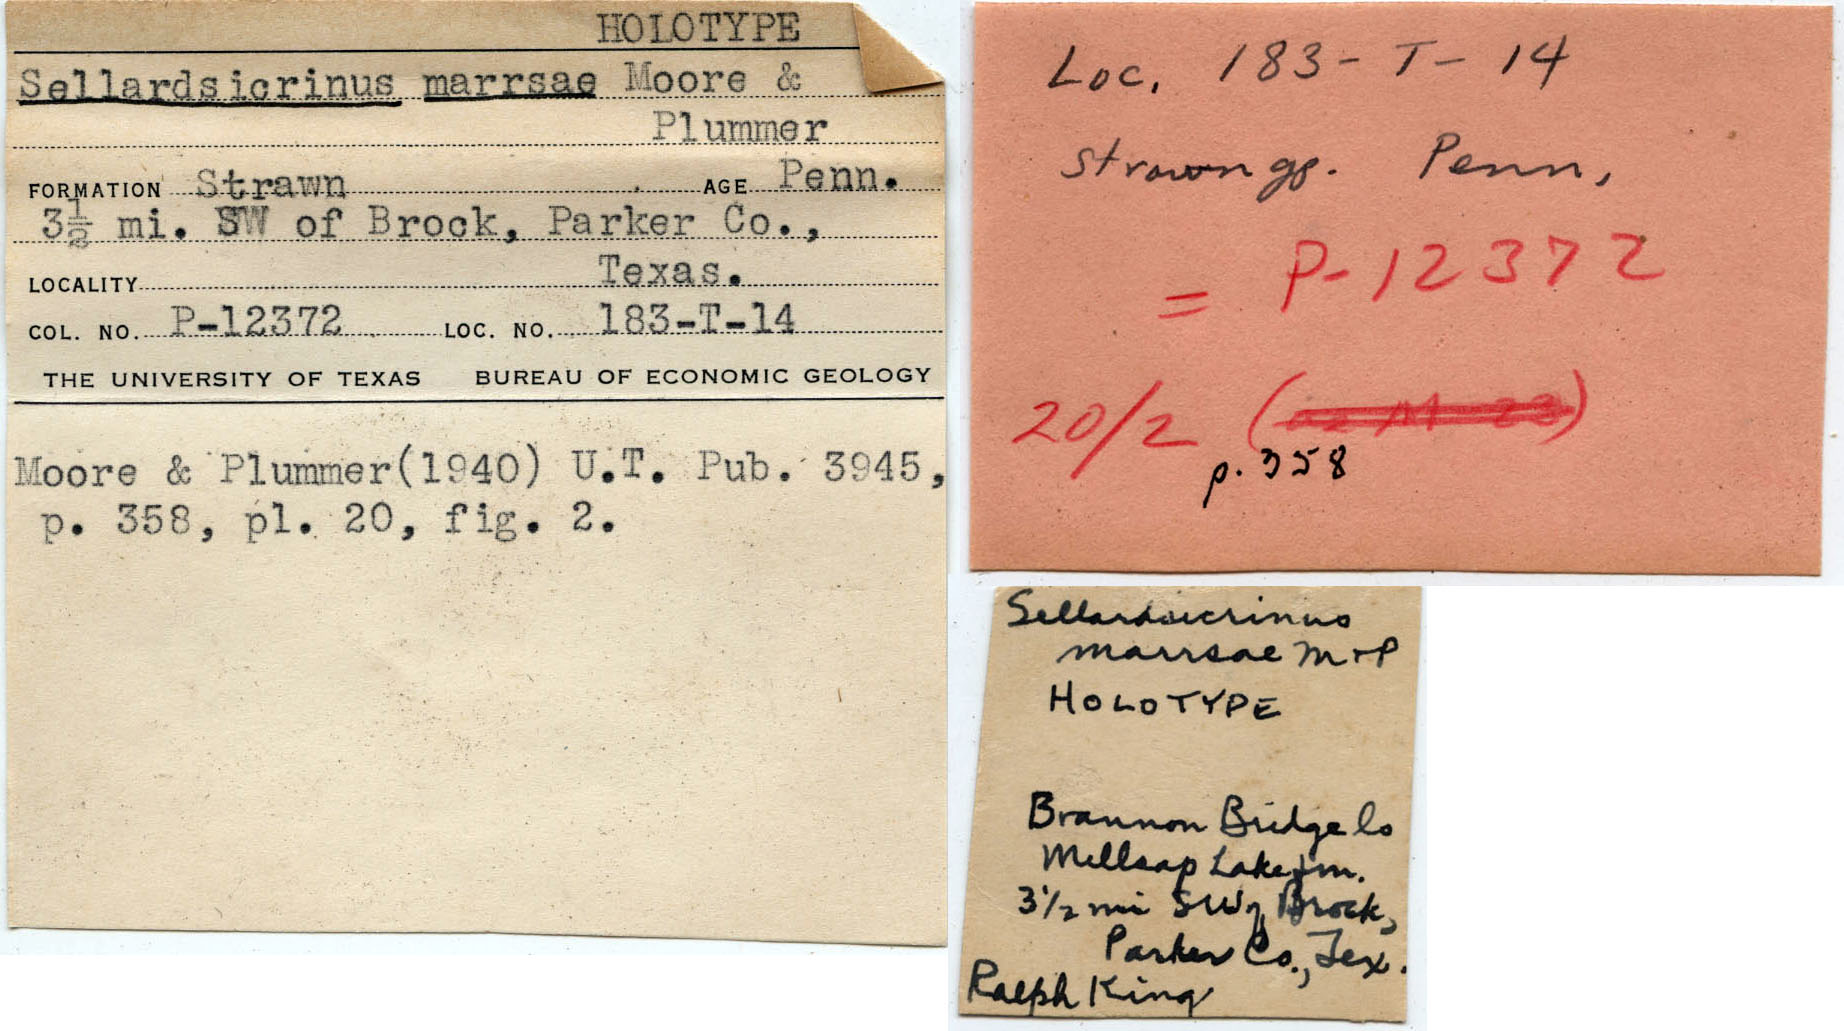 HOLOTYPE
Sellardsicrinus marrsae Moore &
Plummer
FORMATION Strawn AGE Penn.
3½ mi. SW of Brock, Parker Co.,
LOCALITY Texas.
COL. NO. P-12372 LOC. NO. 183-T-14
THE UNIVERSITY OF TEXAS BUREAU OF ECONOMIC GEOLOGY
Moore & Plummer(1940) U.T. Pub. 3945,
p. 358, pl. 20, fig. 2.
Loc. 183-T-14
Strawn gp. Penn.
= P-12372
20/2 ( )
p. 358
Sellardsicrinus
marrsae M+P
HOLOTYPE
Brannon Bridge ls
Millsap Lake fm.
3 1/2 mi SW of Brock,
Parker Co., Tex.
Ralph King